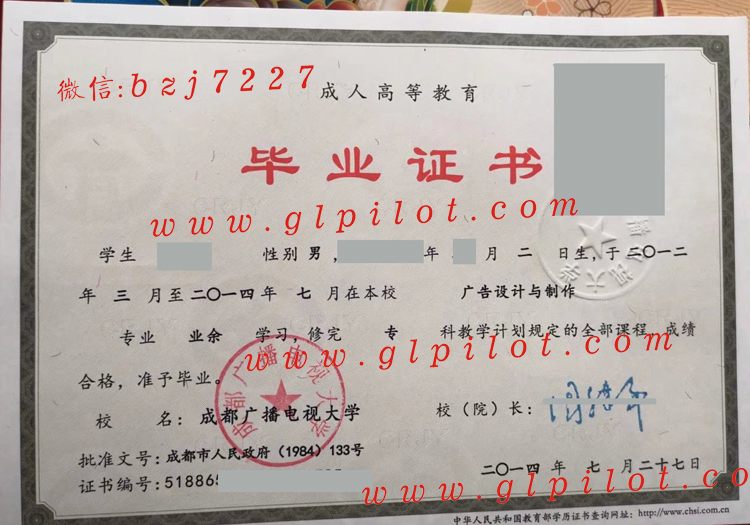 微信:bzj7227
成人高等教育
毕业证书
www.glpilot.com
学生 性别 男 , 年 月 二 日生,于 二〇一二
年 三 月至 二〇一四 年 七 月在本校 广告设计与制作
专业 业余 学习,修完 专 科教学计划规定的全部课程,成绩
www.glpilot.com
合格,准予毕业。
成都广播电视大学
校 名:成都广播电视大学 校(院)长:
批准文号:成都市人民政府(1984)133号
证书编号:518865
二〇一四 年 七 月 二十七 日
www.glpilot.co
中华人民共和国教育部学历证书查询网址:http://www.chsi.com.cn